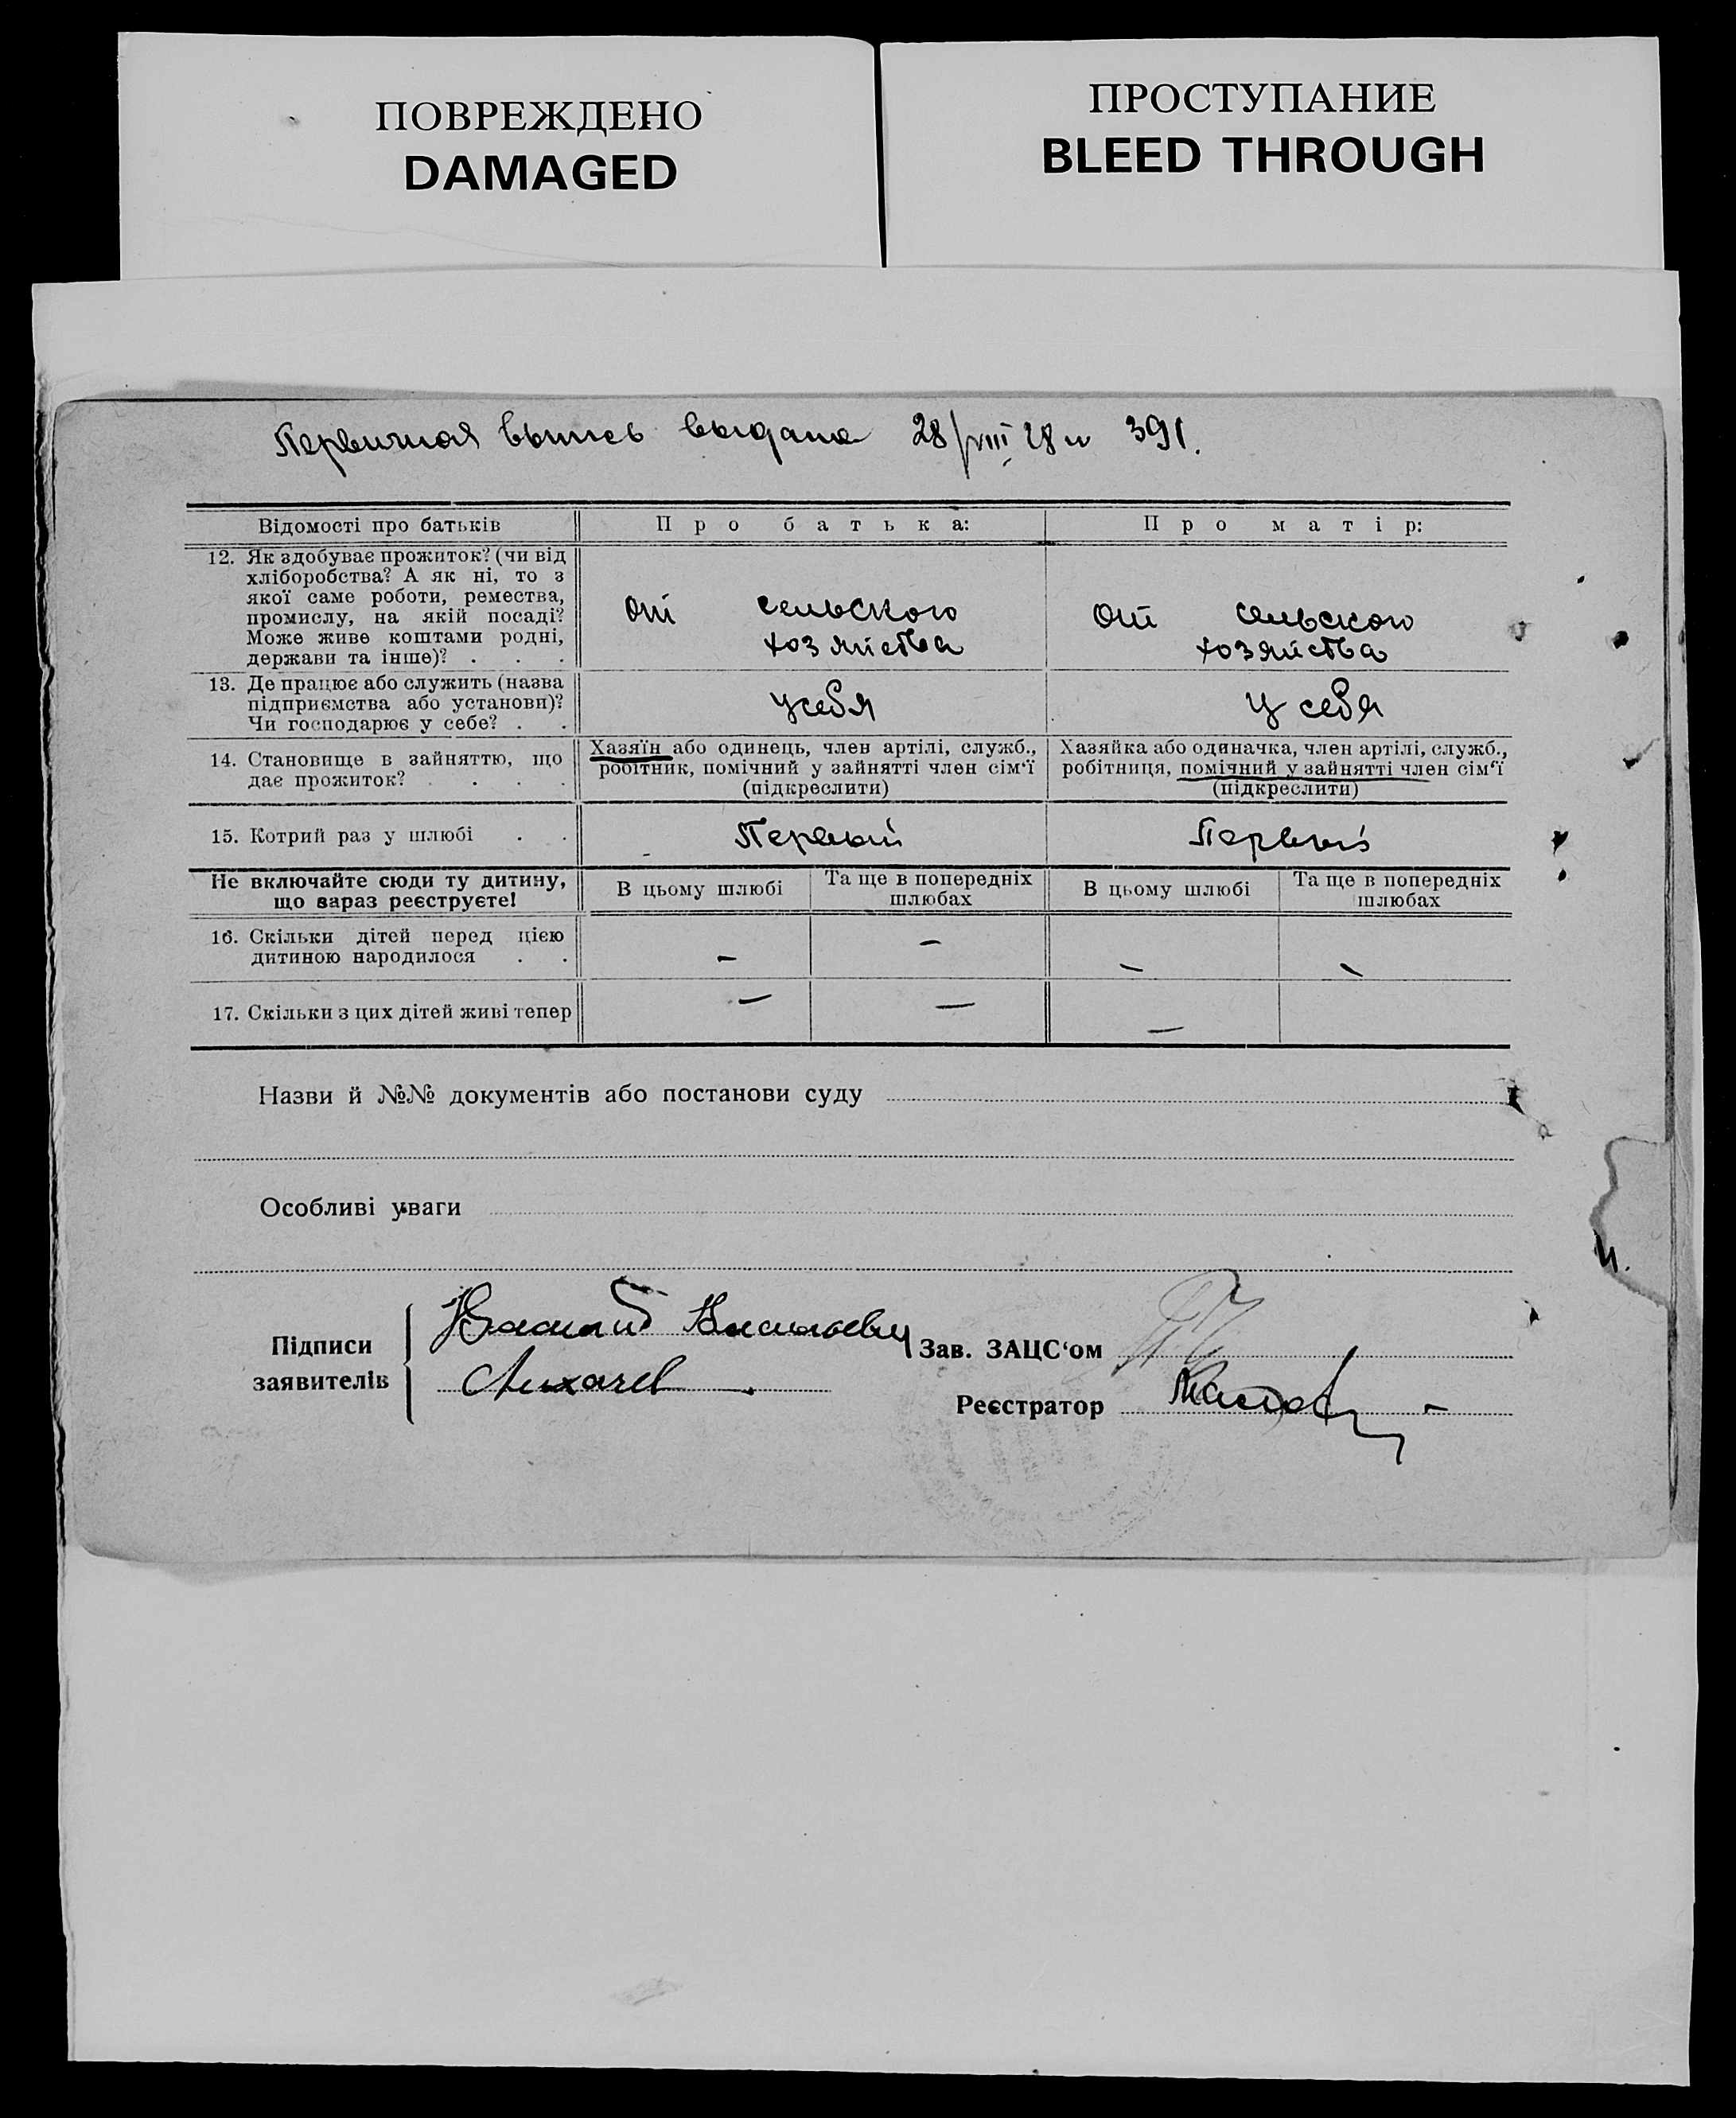 ПОВРЕЖДЕНО
DAMAGED
ПРОСТУПАНИЕ
BLEED THROUGH
Первичная выпись выдана 28/VIII 28 и 391.
Відомості про батьків
Про батька:
Про матір:
12. Як здобуває прожиток? (чи від
хліборобства? А як ні, то з
якої саме роботи, ремества,
промислу, на якій посаді?
Може живе коштами родні,
держави та інше)? . . .
от сельского
хозяйства
от сельского
хозяйства
13. Де працює або служить (назва
підприємства або установи)?
Чи господарює у себе? . .
у себя
у себя
14. Становище в зайняттю, що
дає прожиток? . . . .
Хазяїн або одинець, член артілі, служб.,
робітник, помічний у зайнятті член сім'ї
(підкреслити)
Хазяйка або одиначка, член артілі, служб.,
робітниця, помічний у зайнятті член сім'ї
(підкреслити)
15. Котрий раз у шлюбі . .
Первый
Первый
Не включайте сюди ту дитину,
що зараз реєструєте!
В цьому шлюбі
Та ще в попередніх
шлюбах
В цьому шлюбі
Та ще в попередніх
шлюбах
16. Скільки дітей перед цією
дитиною народилося . .
– – – –
17. Скільки з цих дітей живі тепер
– – –
Назви й №№ документів або постанови суду
Особливі уваги
Підписи
заявителів
Лихачев
Зав. ЗАЦС'ом
Реєстратор